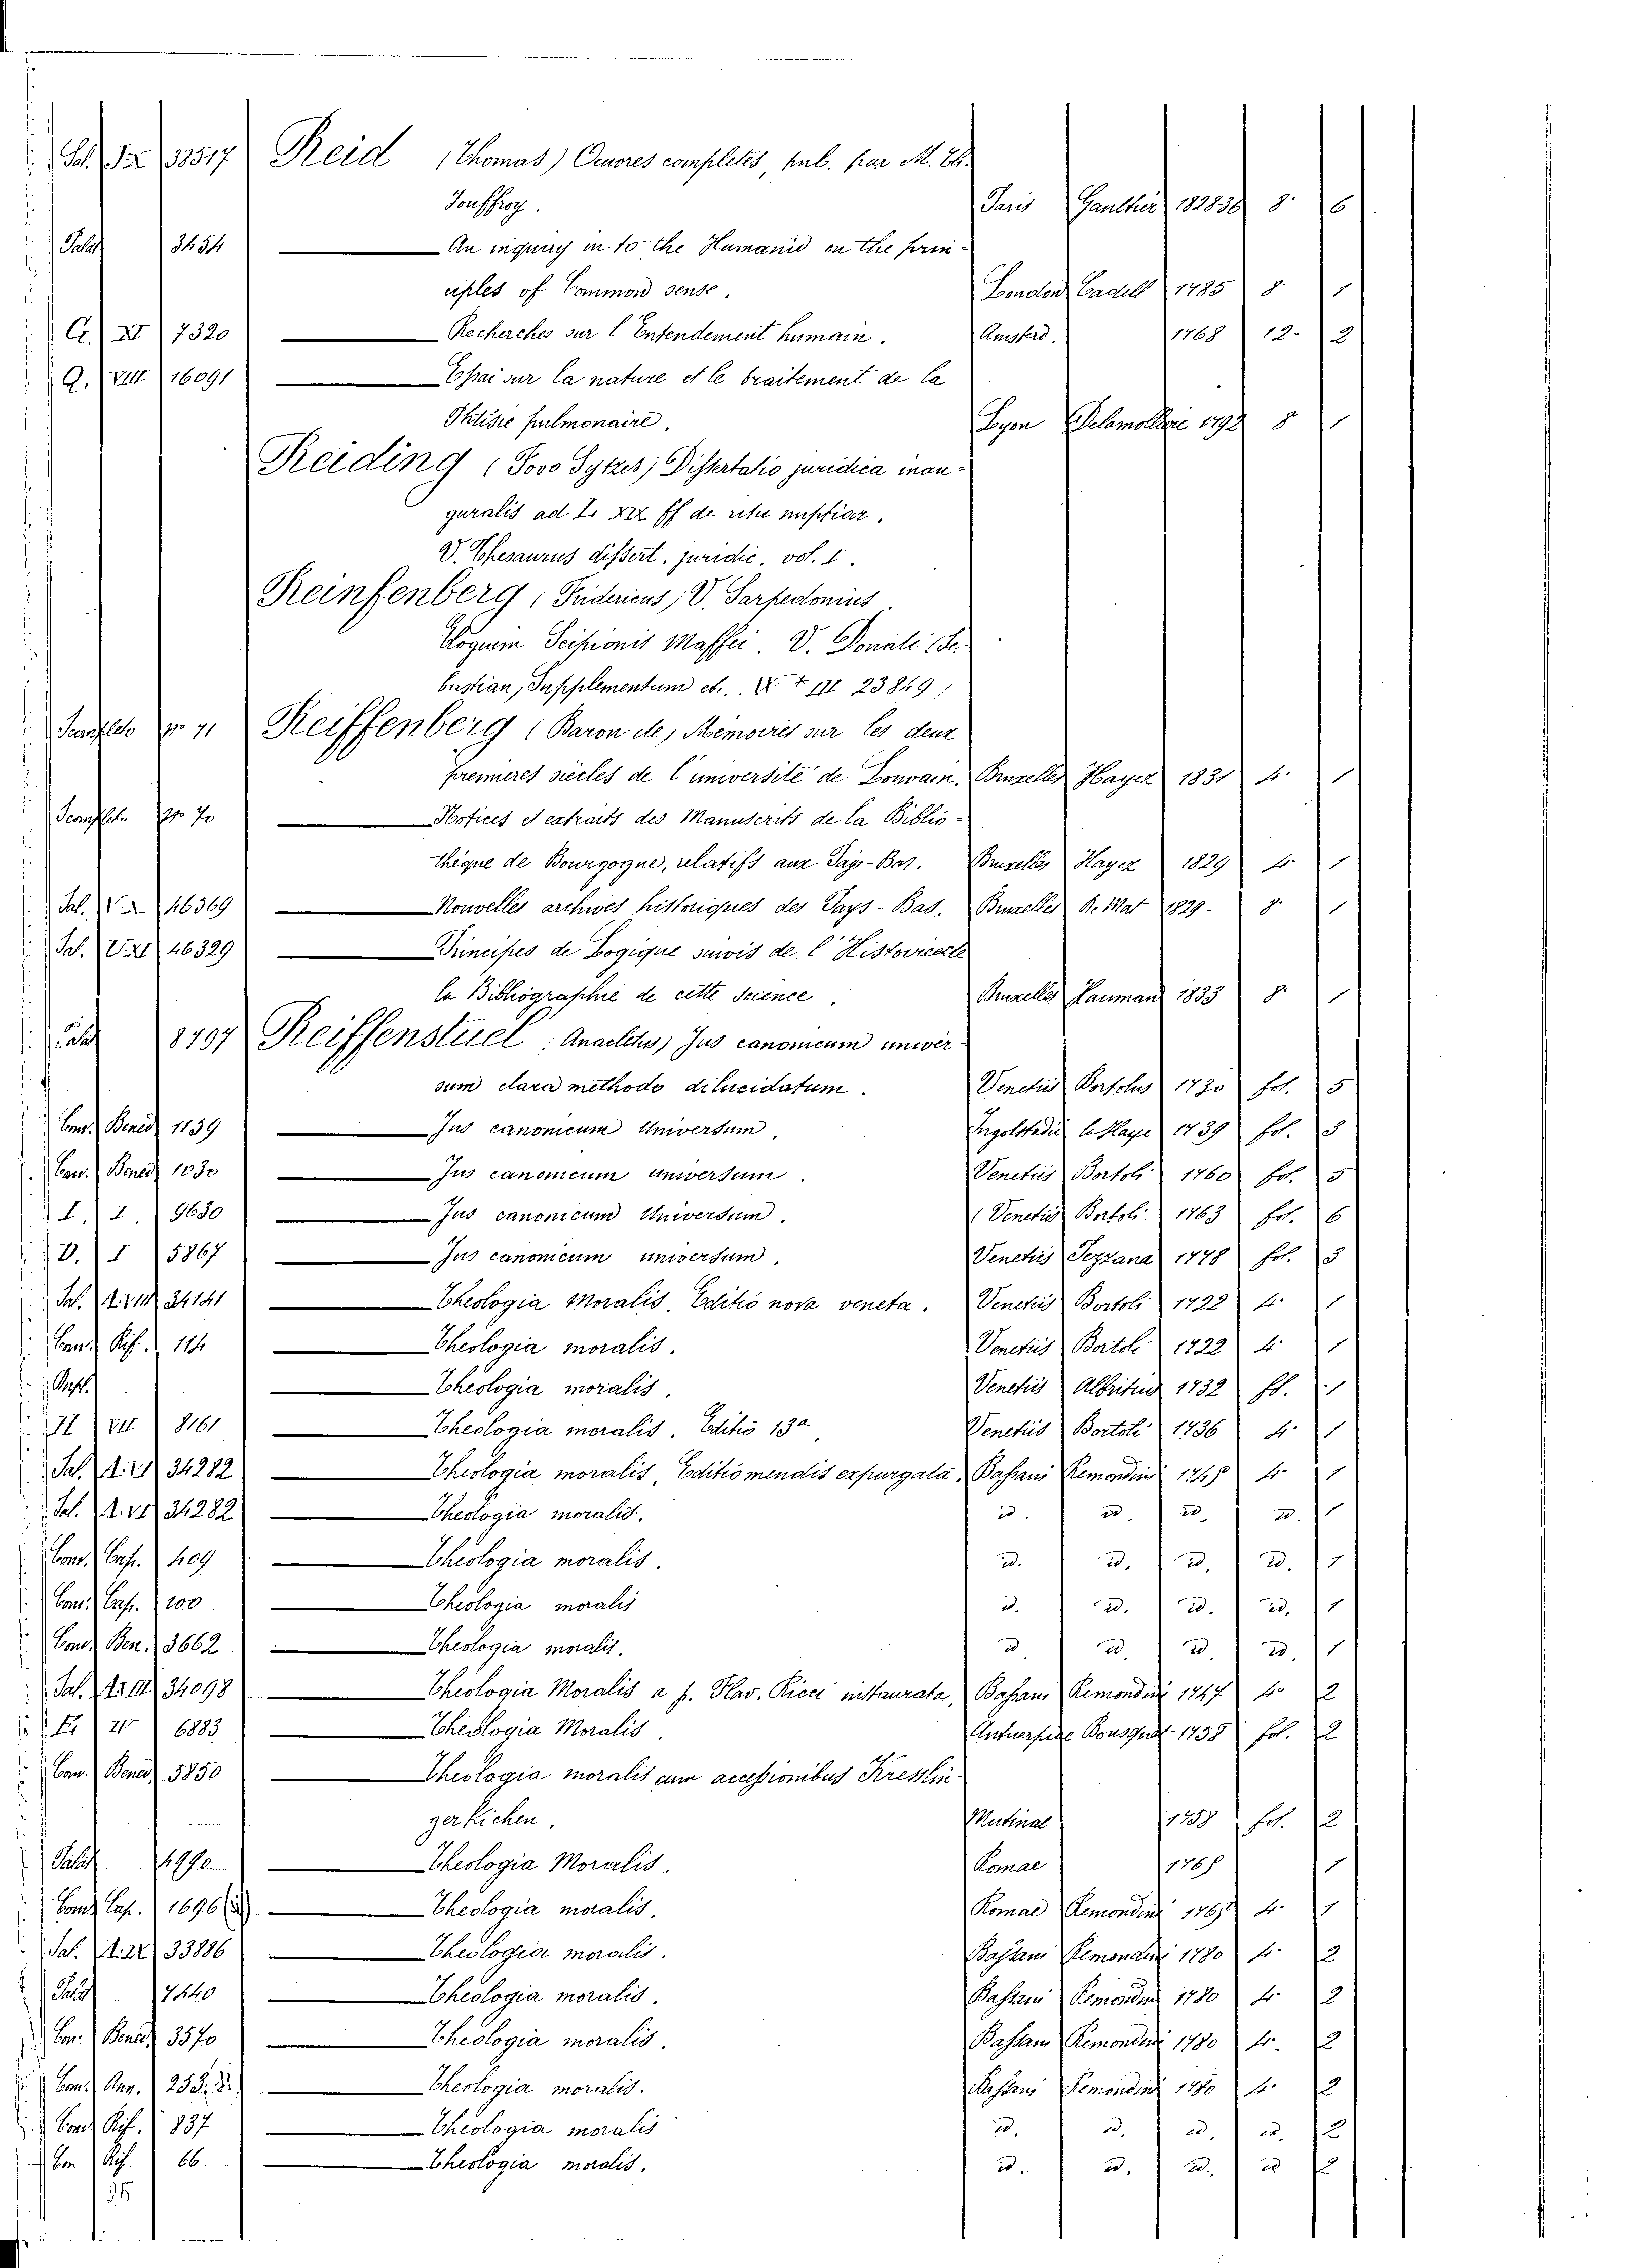 38517 Reid (Thomas) Oeuvres complètes, pub. par M. Th.
Jouffroy. Paris Gauthier 182836 8. 6
Palat 3454 An inquiry in to the Humanid on the prin-
ciples of Common sense. London Cadell 1785 8. 1
G. XI 7320 Recherches sur l'Entendement humain. Amsterd. 1768 12. 2
Q. VIII 16091 Essai sur la nature et le traitement de la
Phtisie pulmonaire. Lyon Delamolliere 1792 8 1
Reiding (Povo Sytzes) Dissertatio juridica inau-
guralis ad L. XIX ff de ritu nuptiar.
V. Thesaurus dissert. juridic. vol. I.
Reinfenberg, Fridericus, V. Sarpedonius.
Elogium Scipionis Maffei. V. Donati (Se-
bastian, Supplementum etc. III 23849)
71 Reiffenberg (Baron de) Mémoires sur les deux
premieres siècles de l'université de Louvain. Bruxelles Hayez 1831 4. 1
70 Notices et extraits des Manuscrits de la Biblio-
thèque de Bourgogne, relatifs aux Pays-Bas. Bruxelles Hayez 1829 4. 1
Pal. 46369 Nouvelles archives historiques des Pays-Bas. Bruxelles Mat 1829- 8. 1
Pal. 46329 Principes de Logique suivis de l'Histoire et de
la Bibliographie de cette science. Bruxelles Hauman 1833 8. 1
Palat 8797 Reiffenstuel Anacletus, Jus canonicum univer-
sum clara methodo dilucidatum. Venetiis Bortolus 1730 fol. 5
Conv. Bened 1139 Jus canonicum Universum. Ingolstadii la Haye 1739 fol. 3
Conv. Bened 1030 Jus canonicum universum. Venetiis Bortoli 1760 fol. 5
I. I. 9630 Jus canonicum Universum. Venetiis Bortoli. 1763 fol. 6
D. I 5867 Jus canonicum universum. Venetiis Pezzana 1778 fol. 3
34141 Theologia Moralis. Editio nova veneta. Venetiis Bortoli 1722 4. 1
Conv. Rif. 114 Theologia moralis. Venetiis Bortoli 1722 4. 1
Theologia moralis. Venetiis Albritius 1732 fol. 1
II VII 8161 Theologia moralis. Editio 13a. Venetiis Bortoli 1736 4. 1
34282 Theologia moralis, Editio mendis expurgata, Bassani Remondini 4. 1
34282 Theologia moralis. id. id. id. id. 1
Conv. Cap. 409 Theologia moralis. id. id. id. id. 1
Conv. Cap. 100 Theologia moralis id. id. id. id. 1
Conv. Ben. 3662 Theologia moralis. id. id. id. id. 1
34098 Theologia Moralis a p. Flav. Ricci instaurata, Bassani Remondini 1747 4. 2
6883 Theologia Moralis. Antuerpiae Bousquet 1738 fol. 2
Con. Bened 5850 Theologia moralis cum accessionibus Kresslin-
gerkichen. Mutinae fol. 2
Palat Theologia Moralis. Romae 1
Conv. Cap. 1696 Theologia moralis. Romae Remondini 4. 1
33886 Theologia moralis. Bassani Remondini 1780 4. 2
Palat 7440 Theologia moralis. Bassani Remondini 1780 4. 2
Con. Bened 3570 Theologia moralis. Bassani Remondini 1780 4. 2
Conv. Ann. Theologia moralis. Bassani Remondini 1780 4. 2
Conv Rif. 837 Theologia moralis id. id. id. id. 2
Con Rif. 66 Theologia moralis. id. id. id. id 2